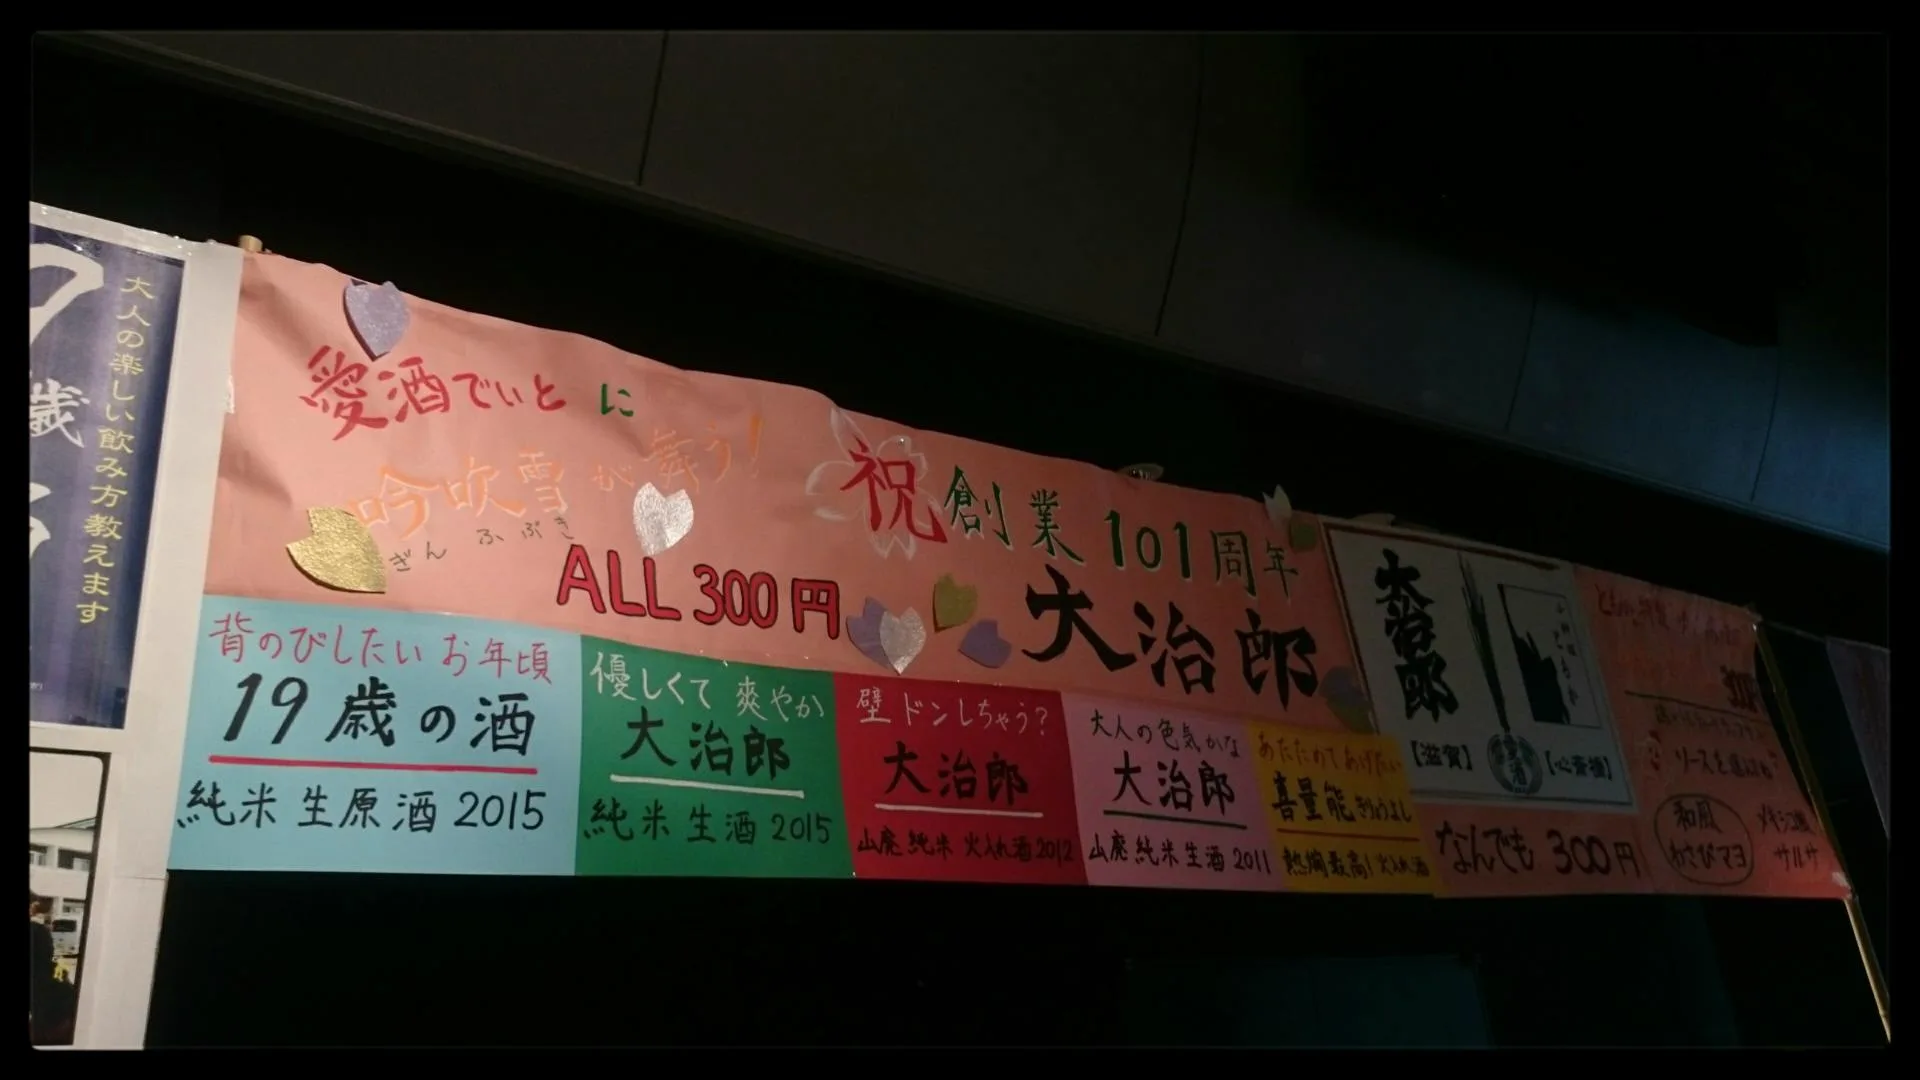 大人の楽しい飲み方教えます
歳
愛酒でぃとに
吟吹雪が舞う!
ぎんふぶき
ALL 300円
祝創業101周年
大治郎
背のびしたいお年頃
19歳の酒
純米生原酒2015
優しくて爽やか
大治郎
純米生酒2015
壁ドンしちゃう?
大治郎
山廃純米火入れ酒2012
大人の色気かな
大治郎
山廃純米生酒2011
あたためてあげたい
喜量能きりょうよし
熱燗最高!火入れ酒
大治郎
【滋賀】
【心斎橋】
なんでも300円
ソースを
和風
わさびマヨ
サルサ